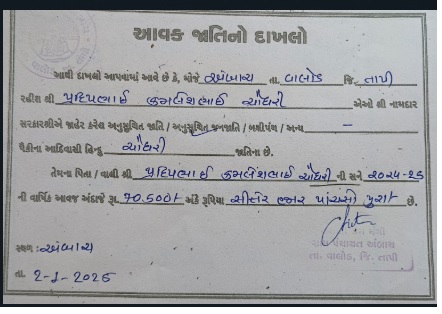 આવક જાતિનો દાખલો
આથી દાખલો આપવામાં આવે છે કે, મોજે અંબાચ તા. વાલોડ જિ. તાપી
રહીશ શ્રી પ્રદિપભાઈ કમલેશભાઈ ચૌધરી એઓ શ્રી નામદાર
સરકારશ્રીએ જાહેર કરેલ અનુસુચિત જાતિ / અનુસુચિત જનજાતિ / બક્ષીપંચ / અન્ય —
પૈકીના આદિવાસી હિન્દુ ચૌધરી જાતિના છે.
તેમના પિતા / વાલી શ્રી પ્રદિપભાઈ કમલેશભાઈ ચૌધરી ની સને ૨૦૨૪-૨૫
ની વાર્ષિક આવક અંદાજે રૂા. 70.500/- અંકે રૂપિયા સીત્તેર હજાર પાંચસો પુરા છે.
સ્થળ : અંબાચ
તા. 2-1-2025
પંચાયત અંબાચ
તા. વાલોડ, જિ. તાપી